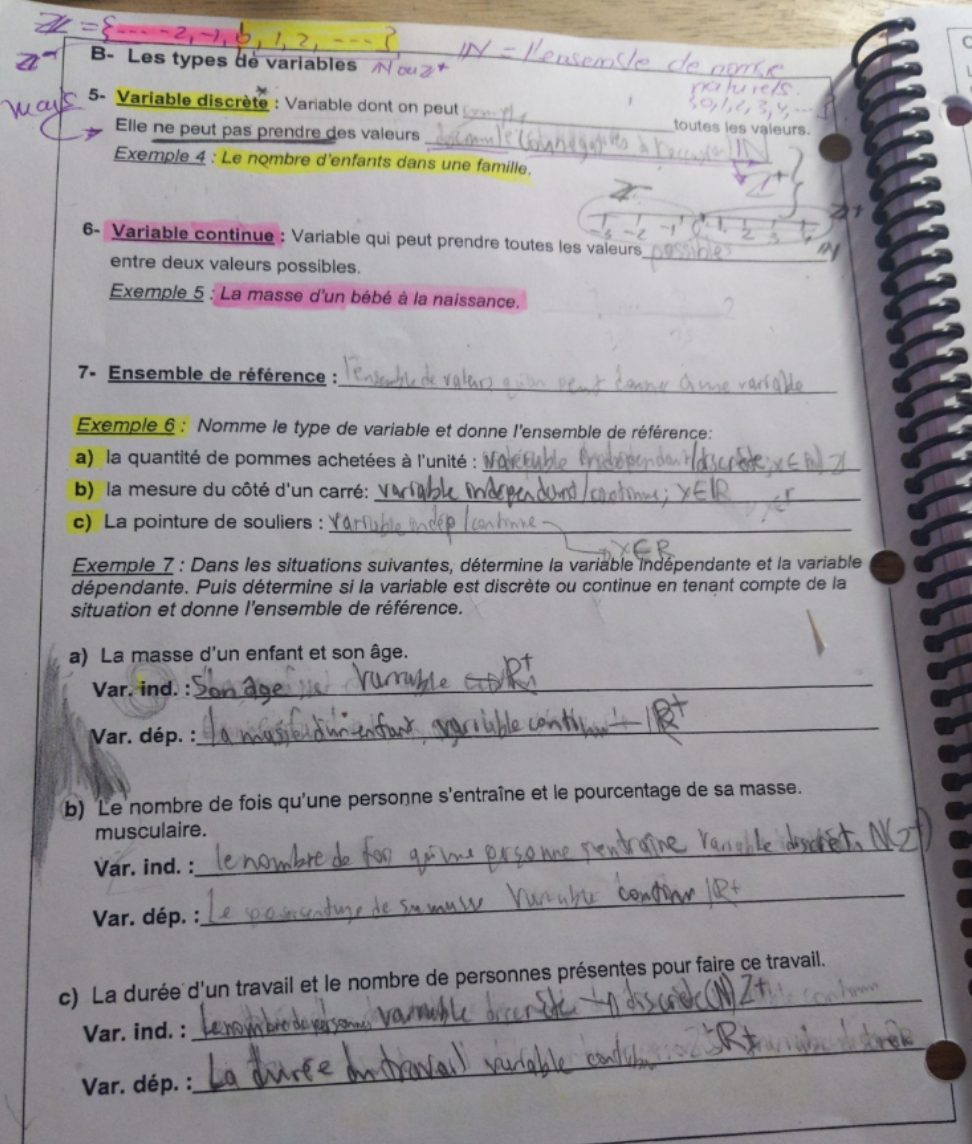 ℤ = {... -2, -1, 0, 1, 2, ... }
ℤ⁻
B- Les types de variables
ℕ ou ℤ⁺
ℕ = l'ensemble de
naturels
{0, 1, 2, 3, 4, ...
5- Variable discrète : Variable dont on peut toutes les valeurs.
Elle ne peut pas prendre des valeurs ℕ
ℤ⁺
Exemple 4 : Le nombre d'enfants dans une famille.
ℤ⁻ ℤ⁺
-3 -2 -1 0 1 2 3
ℕ
6- Variable continue : Variable qui peut prendre toutes les valeurs possibles
entre deux valeurs possibles.
Exemple 5 : La masse d'un bébé à la naissance.
7- Ensemble de référence : l'ensemble de valeurs qu'on peut donne à une variable
Exemple 6 : Nomme le type de variable et donne l'ensemble de référence:
a) la quantité de pommes achetées à l'unité : independant/discrète; x ∈ ℕ
b) la mesure du côté d'un carré: variable independand/continue; x ∈ ℝ
c) La pointure de souliers : variable indép/continue
x ∈ ℝ
Exemple 7 : Dans les situations suivantes, détermine la variable indépendante et la variable
dépendante. Puis détermine si la variable est discrète ou continue en tenant compte de la
situation et donne l'ensemble de référence.
a) La masse d'un enfant et son âge.
Var. ind. : Son âge variable ℝ⁺
Var. dép. : la masse d'un enfant variable continue ℝ⁺
b) Le nombre de fois qu'une personne s'entraîne et le pourcentage de sa masse.
musculaire.
Var. ind. : le nombre de fois qu'une personne s'entraîne variable discrète ℕ(ℤ⁺)
Var. dép. : Le pourcentage de sa masse variable continue ℝ⁺
c) La durée d'un travail et le nombre de personnes présentes pour faire ce travail.
Var. ind. : Le nombre de personne variable discrète → discrète (ℕ) ℤ⁺
Var. dép. : La durée du travail variable ℝ⁺